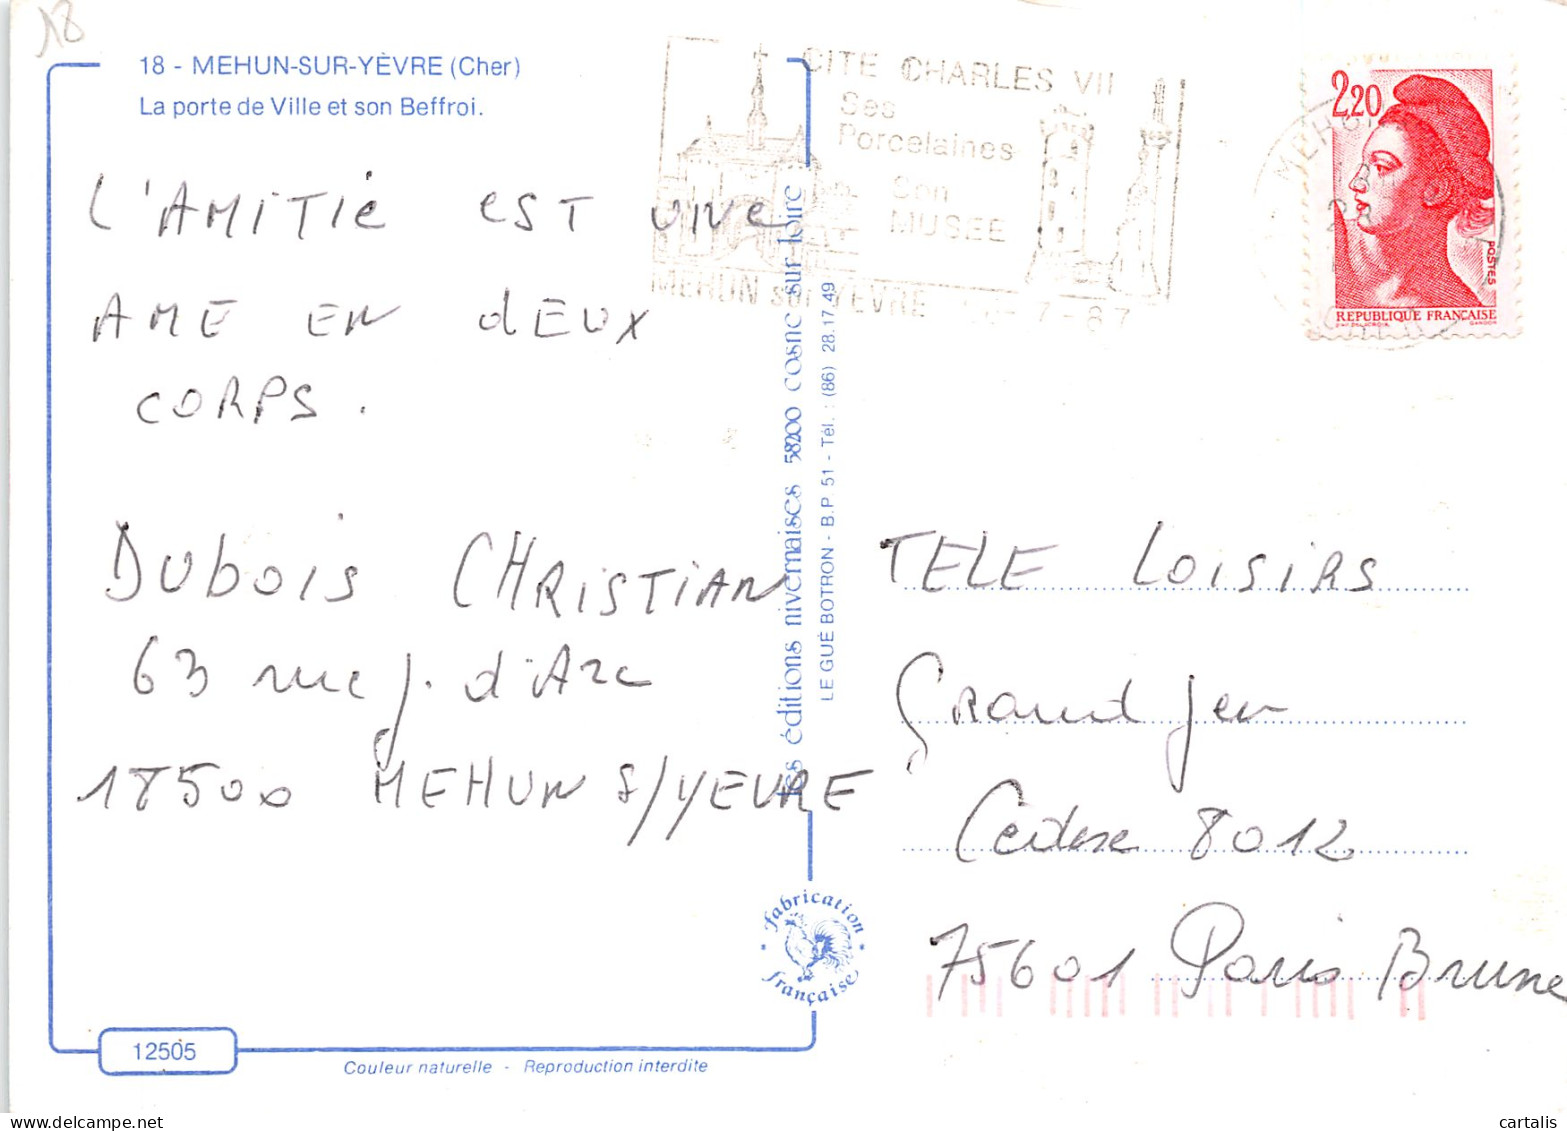 18
18 - MEHUN-SUR-YÈVRE (Cher)
La porte de Ville et son Beffroi.
CITE CHARLES VII
Ses
Porcelaines
Son
MUSEE
MEHUN sur YEVRE
7-87
2,20
POSTES
REPUBLIQUE FRANÇAISE
L'AMITIÉ EST UNE
AME EN DEUX
CORPS.
DUBOIS CHRISTIAN
63 rue J. d'Arc
18500 MEHUN S/YEVRE
les éditions nivernaises 58200 cosne sur loire
LE GUÉ BOTRON - B.P. 51 - Tél. : (86) 28.17.49
TELE LOISIRS
Grand Jeu
Cedex 8012
75601 Paris Brune
fabrication
française
12505
Couleur naturelle - Reproduction interdite
cartalis